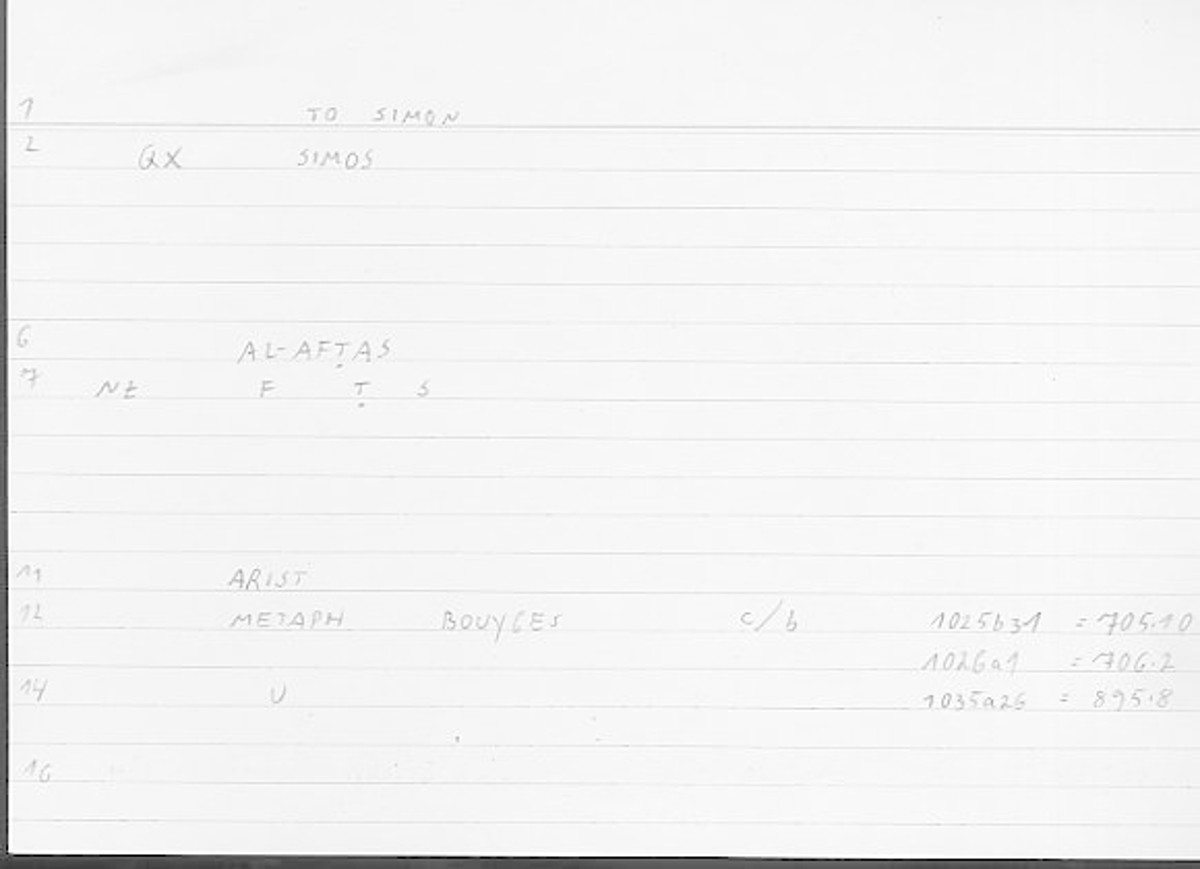 1 TO SIMON
2 QX SIMOS
6 AL-AFṬAS
7 NE F Ṭ S
11 ARIST
12 METAPH BOUYGES c/b 1025b31 = 705.10
1026a1 = 706.2
14 U 1035a26 = 895.8
16